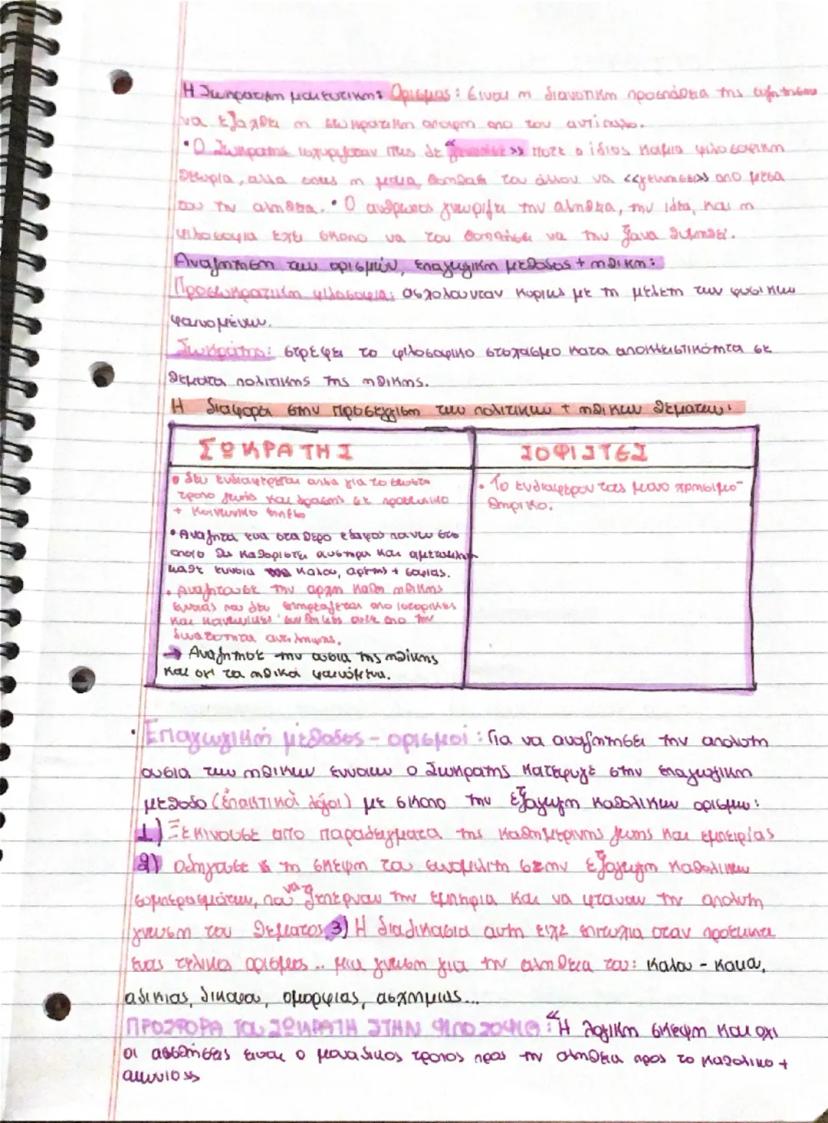 Η Σωκρατικη μαιευτικη: Ορισμος: Ειναι η διανοητικη προσπαθεια της συζητησεως
να εξαχθει η σωκρατικη αποψη απο τον αντιπαλο.
• Ο Σωκρατης ισχυριζοταν πως δε "γεννησε» ποτε ο ιδιος καμια φιλοσοφικη
θεωρια, αλλα οπως η μαια βοηθαει τον αλλον να «γεννησει» απο μεσα
του την αληθεια. • Ο ανθρωπος γνωριζει την αληθεια, την ιδεα, και η
φιλοσοφια εχει σκοπο να τον βοηθησει να την ξανα θυμηθει.
Αναζητηση των ορισμών, επαγωγικη μεθοδος + ηθικη:
Προσωκρατικη φιλοσοφια: ασχολουνταν κυριως με τη μελετη των φυσικων
φαινομένων.
Σωκράτης: στρεφει το φιλοσοφικο στοχασμο κατα αποκλειστικότητα σε
θεματα πολιτικης της ηθικης.
Η διαφορα στην προσεγγιση των πολιτικων + ηθικων θεματων:
ΣΩΚΡΑΤΗΣ
• Δεν ενδιαφερεται απλα για το σωστο
τροπο ζωης και δρασης σε προσωπικο
+ κοινωνικο επιπεδο
• Αναζητα ενα σταθερο εδαφος πανω στο
οποιο θα καθοριστει αυστηρα και αμετακλητα
καθε εννοια καλου, αρετης + σοφιας.
• Αναζητουσε την αρχη καθε ηθικης
εννοιας που δεν επηρεαζεται απο ιστορικες
και κοινωνικες συνθηκες ουτε απο την
δυνατοτητα αντιληψης.
→ Αναζητησε την ουσια της ηθικης
και οχι τα ηθικα φαινόμενα.
ΣΟΦΙΣΤΕΣ
• Το ενδιαφερον τους μονο χρησιμο-
θηρικο.
• Επαγωγική μέθοδος - ορισμοί: Για να αναζητησει την απολυτη
ουσια των ηθικων εννοιων ο Σωκρατης κατεφυγε στην επαγωγικη
μεθοδο (ἐπακτικοὶ λόγοι) με σκοπο την εξαγωγη καθολικων ορισμων:
1) Ξεκινουσε απο παραδειγματα της καθημερινης ζωης και εμπειριας
2) οδηγουσε τη σκεψη του συνομιλητη στην εξαγωγη καθολικων
συμπερασμάτων, που να ξεπερναν την εμπειρια και να φταναν την απολυτη
γνωση του θεματος 3) Η διαδικασια αυτη ειχε επιτυχια οταν προεκυπτε
ενας τελικος ορισμος .. μια γνωση για την αληθεια του: καλου - κακα,
αδικιας, δικαιου, ομορφιας, ασχημιας...
ΠΡΟΣΦΟΡΑ ΤΟΥ ΣΩΚΡΑΤΗ ΣΤΗΝ ΦΙΛΟΣΟΦΙΑ: "Η λογικη σκεψη και οχι
οι αισθήσεις ειναι ο μοναδικος τροπος προς την αληθεια προς το καθολικο +
αιωνιο»